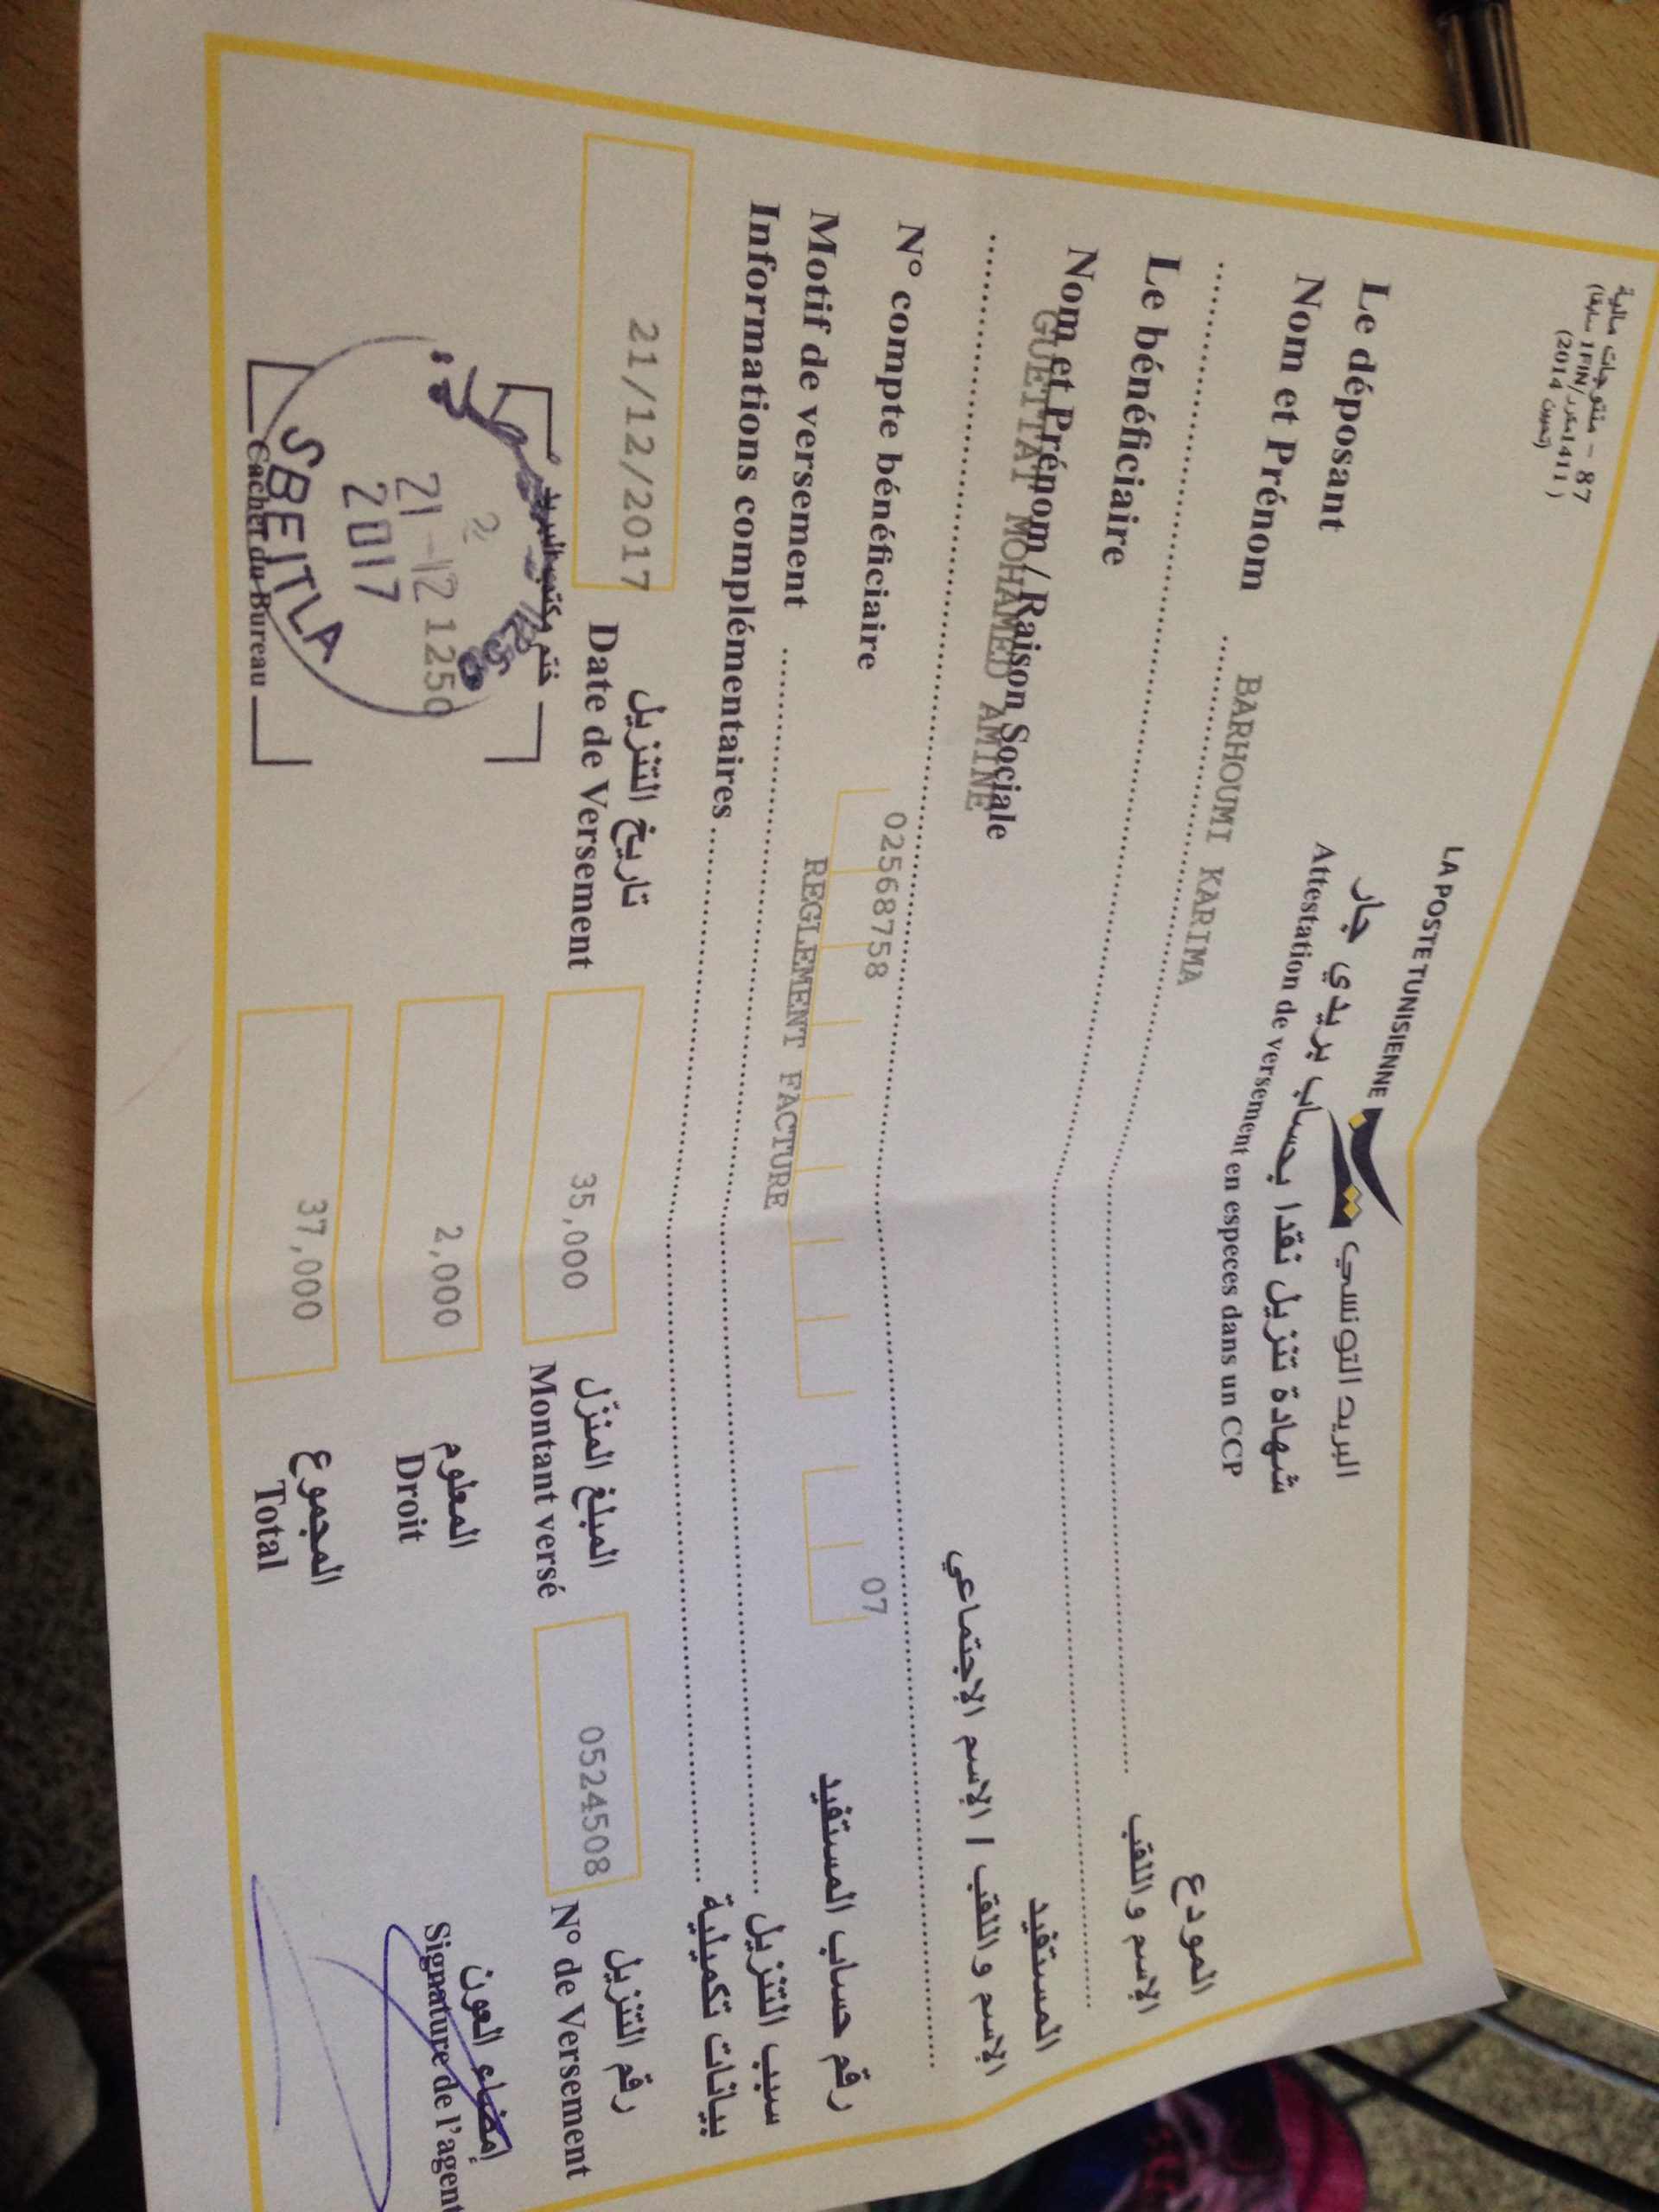 87 - منتوجات مالية
(1411 عدد/1FIN سابقا)
(تحيين 2014)
LA POSTE TUNISIENNE البريد التونسي
شهادة تنزيل نقدا بحساب بريدي جار
Attestation de versement en especes dans un CCP
Le déposant المودع
Nom et Prénom BARHOUMI KARIMA الإسم و اللقب
Le bénéficiaire المستفيد
Nom et Prénom / Raison Sociale الإسم و اللقب / الإسم الإجتماعي
GUETTAT MOHAMED AMINE
N° compte bénéficiaire 02568758 07 رقم حساب المستفيد
Motif de versement REGLEMENT FACTURE سبب التنزيل
Informations complémentaires بيانات تكميلية
21/12/2017 تاريخ التنزيل 35,000 المبلغ المنزّل 0524508 رقم التنزيل
Date de Versement Montant versé N° de Versement
ختم مكتب البريد 2,000 المعلوم إمضاء العون
Droit Signature de l'agent
21-12 1250
2017
SBEITLA
Cachet du Bureau 37,000 المجموع
Total